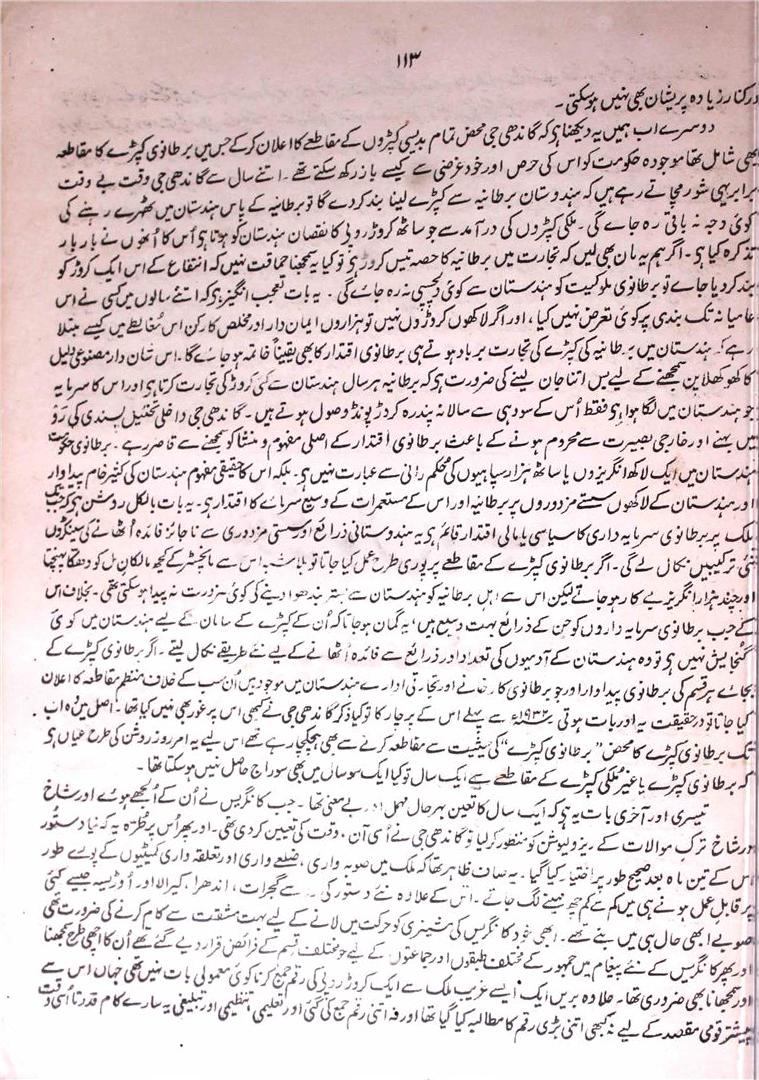 ۱۱۳
درکنار زیادہ پریشان بھی نہیں ہوسکتی۔
دوسرے اب ہمیں یہ دیکھنا ہے کہ گاندھی جی محض تمام بدیسی کپڑوں کے مقاطعے کا اعلان کرکے جس میں برطانوی کپڑے کا مقاطعہ
بھی شامل تھا موجودہ حکومت کو اس کی حرص اور خود غرضی سے کیسے باز رکھ سکتے تھے۔ اتنے سال سے گاندھی جی وقت بے وقت
برابر یہی شور مچاتے رہے ہیں کہ ہندوستان برطانیہ سے کپڑے لینا بند کردے گا تو برطانیہ کے پاس ہندستان میں ٹھہرے رہنے کی
کوئی وجہ نہ باقی رہ جاے گی۔ ملکی کپڑوں کی درآمد سے جو ساٹھ کروڑ روپی کا نقصان ہندستان کو ہوتا ہی اُس کا اُنھوں نے بار بار
تذکرہ کیا ہی۔ اگر ہم یہ مان بھی لیں کہ تجارت میں برطانیہ کا حصہ تیس کروڑ ہی تو کیا یہ سمجھنا حماقت نہیں کہ انتفاع کے اس ایک کروڑ کو
بند کردیا جاے تو برطانوی ملوکیت کو ہندستان سے کوئی دلچسپی نہ رہ جاے گی۔ یہ بات تعجب انگیز ہی کہ اتنے سالوں میں کسی نے اس
عامیانہ تک بندی پر کوئی تعرض نہیں کیا، اور اگر لاکھوں کروڑوں نہیں تو ہزاروں ایمان دار اور مخلص کارکن اس مُغالطے میں کیسے مبتلا
رہے کہ ہندستان میں برطانیہ کی کپڑے کی تجارت برباد ہوتے ہی برطانوی اقتدار کا بھی یقیناً خاتمہ ہوجاے گا۔ اس شان دار مصنوعی دلیل
کا کھوکھلا پن سمجھنے کے لیے بس اتنا جان لینے کی ضرورت ہی کہ برطانیہ ہر سال ہندستان سے کئی کروڑ کی تجارت کرتا ہی اور اس کا سرمایہ
جو ہندستان میں لگا ہوا ہی فقط اُس کے سود ہی سے سالانہ پندرہ کروڑ پونڈ وصول ہوتے ہیں۔ گاندھی جی داخلی تخئیل پسندی کی رَو
میں بہنے اور خارجی بصیرت سے محروم ہونے کے باعث برطانوی اقتدار کے اصلی مفہوم و منشا کو سمجھنے سے قاصر رہے۔ برطانوی حکومت
ہندستان میں ایک لاکھ انگریزوں یا ساٹھ ہزار سپاہیوں کی محکم رانی سے عبارت نہیں ہی۔ بلکہ اس کا حقیقی مفہوم ہندستان کی کثیر خام پیداوار
اور ہندستان کے لاکھوں سستے مزدوروں پر برطانیہ اور اس کے مستعمرات کے وسیع سرماے کا اقتدار ہی۔ یہ بات بالکل روشن ہی کہ جب تک
ملک پر برطانوی سرمایہ داری کا سیاسی یا مالی اقتدار قائم ہی یہ ہندوستانی ذرائع اور سستی مزدوری سے ناجائز فائدہ اُٹھانے کی سینکڑوں
نئی ترکیبیں نکال لے گی۔ اگر برطانوی کپڑے کے مقاطعے پر پوری طرح عمل کیا جاتا تو بلاشبہ اس سے مانچسٹر کے کچھ مالکان مل کو دھکا پہنچتا
اور چند ہزار انگریز بے کار ہوجاتے لیکن اس سے اہل برطانیہ کو ہندستان سے بستر بندھوا دینے کی کوئی ضرورت نہ پیدا ہوسکتی تھی۔ بخلاف اس
کے جب برطانوی سرمایہ داروں کو جن کے ذرائع بہت وسیع ہیں، یہ گمان ہوجاتا کہ اُن کے کپڑے کے سامان کے لیے ہندستان میں کوئی
گنجایش نہیں ہی تو وہ ہندستان کے آدمیوں کی تعداد اور ذرائع سے فائدہ اُٹھانے کے لیے نئے طریقے نکال لیتے۔ اگر برطانوی کپڑے کے
بجاے ہر قسم کی برطانوی پیداوار اور جو برطانوی کارخانے اور تجارتی ادارے ہندستان میں موجود ہیں اُن سب کے خلاف منظم مقاطعہ کا اعلان
کیا جاتا تو درحقیقت یہ اور بات ہوتی ۱۹۳۲ء سے پہلے اس کے پرچار کا تو کیا ذکر گاندھی جی نے کبھی اس پر غور بھی نہیں کیا تھا۔ اصل میں وہ اب
تک برطانوی کپڑے کا محض "برطانوی کپڑے" کی حیثیت سے مقاطعہ کرنے سے بھی ہچکچا رہے تھے اس لیے یہ امر روز روشن کی طرح عیاں ہی
کہ برطانوی کپڑے یا غیر ملکی کپڑے کے مقاطعے سے ایک سال تو کیا ایک سو سال میں بھی سوراج حاصل نہیں ہوسکتا تھا۔
تیسری اور آخری بات یہ ہی کہ ایک سال کا تعین بہرحال مہمل اور بے معنی تھا۔ جب کانگریس نے اُن کے اُلجھے ہوے اور شاخ
در شاخ ترک موالات کے ریزولیوشن کو منظور کرلیا تو گاندھی جی نے اُسی آن، وقت کی تعیین کردی تھی۔ اور پھر اُس پر طُرّہ یہ کہ نیا دستور
اس کے تین ماہ بعد صحیح طور پر اختیار کیا گیا۔ یہ صاف ظاہر تھا کہ ملک میں صوبہ واری، ضلعے واری اور تعلقہ واری کمیٹیوں کے پورے طور
پر قابل عمل ہونے ہی میں کم سے کم چھ مہینے لگ جاتے۔ اس کے علاوہ نئے دستور کی سے گجرات، اندھرا، کیرالا اور اُڑیسہ جیسے کئی
صوبے ابھی حال ہی میں بنے تھے۔ ابھی خود کانگریس کی مشینری کو حرکت میں لانے کے لیے بہت مشقت سے کام کرنے کی ضرورت تھی
اور پھر کانگریس کے نئے پیغام میں جمہور کے مختلف طبقوں اور جماعتوں کے لیے جو مختلف قسم کے فرائض قرار دیے گئے تھے اُن کا اچھی طرح سمجھنا
اور سمجھانا بھی ضروری تھا۔ علاوہ بریں ایک ایسے غریب ملک سے ایک کروڑ روپی کی رقم جمع کرنا کوئی معمولی بات نہیں تھی جہاں اس سے
پیشتر قومی مقصد کے لیے نہ کبھی اتنی بڑی رقم کا مطالبہ کیا گیا تھا اور نہ اتنی رقم جمع کی گئی اور تعلیمی، تنظیمی اور تبلیغی یہ سارے کام قدرتاً اُسی وقت